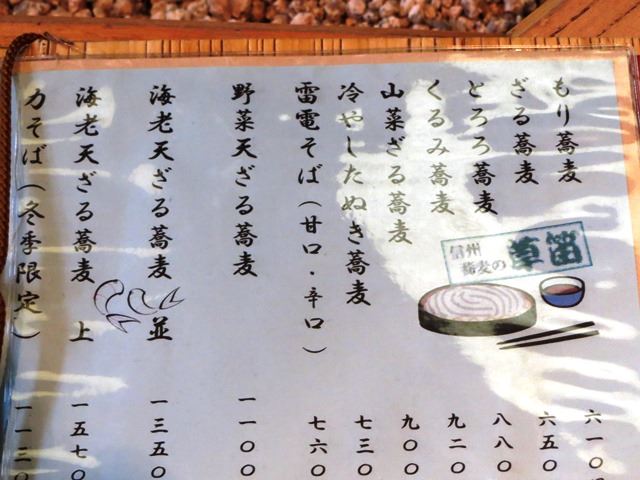 もり蕎麦 六一〇
ざる蕎麦 六五〇
とろろ蕎麦 八八〇
くるみ蕎麦 九二〇
山菜ざる蕎麦 九〇〇
冷やしたぬき蕎麦 七三〇
雷電そば（甘口・辛口） 七六〇
野菜天ざる蕎麦 一一〇〇
海老天ざる蕎麦 並 一三五〇
海老天ざる蕎麦 上 一五七〇
力そば（冬季限定） 一一三〇
信州
蕎麦の
草笛